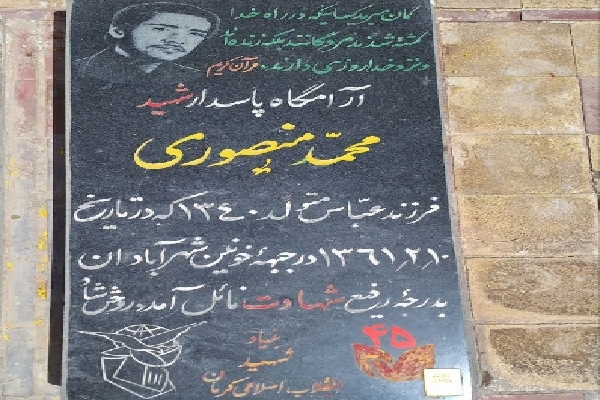 گمان مبرید کسانیکه در راه خدا
کشته شدند مرده گانند بلکه زنده اند
و نزد خدا روزی دارند. قرآن کریم
آرامگاه پاسدار شهید
محمّد منصوری
فرزند عبّاس متولد ۱۳۴۰ که در تاریخ
۱۳۶۱٫۲٫۱۰ در جبههٔ خونین شهر آبادان
بدرجهٔ رفیع شهادت نائل آمد. روحش شاد
۴۵
بنیاد
شهید
انقلاب اسلامی کرمان